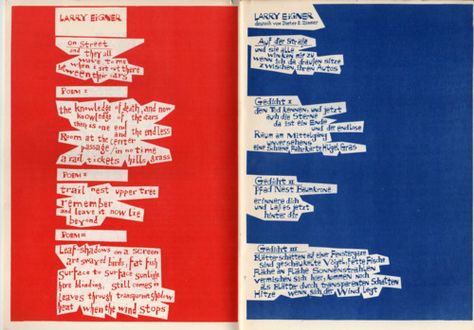 LARRY EIGNER
on street
and they all
wave to me
when I sit out there
between their cars
POEM I
the knowledge of death, and now
knowledge of the stars
there is one end
and the endless
Room at the center
passage/in no time
a rail tickets hills grass
POEM II
trail nest upper tree
remember
and leave it now lie
beyond
POEM III
Leaf-shadows on a screen
are swayed birds, fat fish
surface to surface sunlight
here blending, still comes
leaves through transparent shadow
heat when the wind stops
LARRY EIGNER
deutsch von Dieter E. Zimmer
Auf der Straße
und sie alle
winken mir zu
wenn ich da draußen sitze
zwischen ihren Autos
Gedicht I
den Tod kennen, und jetzt
auch die Sterne
da ist ein Ende
und der endlose
Raum am Mittelgang
unversehens
eine Schiene, Fahrkarte Hügel Gras
Gedicht II
Pfad Nest Baumkrone
erinnere dich
und laß es jetzt
hinter dir
Gedicht III
Blätterschatten auf einer Fenstergaze
sind geschaukelte Vögel, fette Fische
Fläche an Fläche Sonnenstrahlen
vermischen sich hier, kommen noch
als Blätter durch transparenten Schatten
Hitze wenn sich der Wind legt